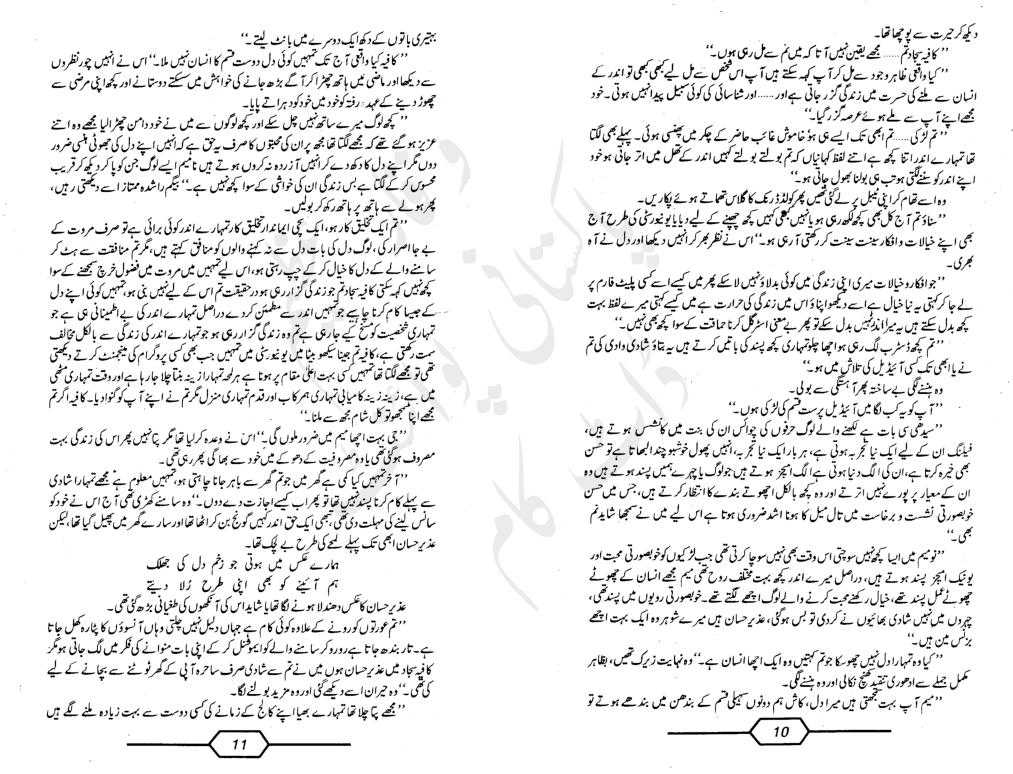 دیکھ کر حیرت سے پوچھا تھا۔
’’کافیہ سجاد تم...... مجھے یقین نہیں آتا کہ میں تم سے مل رہی ہوں۔‘‘
’’کیا واقعی ظاہر وجود سے مل کر آپ کہہ سکتے ہیں آپ اس شخص سے مل لیے کبھی کبھی تو اندر کے
انسان سے ملنے کی حسرت میں زندگی گزر جاتی ہے اور...... اور شناسائی کی کوئی سبیل پیدا نہیں ہوتی۔ خود
مجھے اپنے آپ سے ملے ہوئے عرصہ گزر گیا۔‘‘
’’تم لڑکی ..... تم ابھی تک ایسے ہی ہو خاموش غائب حاضر کے چکر میں پھنسی ہوئی۔ پہلے بھی لگتا
تھا تمہارے اندر اتنا کچھ ہے اتنے لفظ کہانیاں کہ تم بولتے بولتے کہیں اندر کے تھل میں اتر جاتی ہو خود
اپنے اندر کو سننے لگتی ہو تب ہی بولنا بھول جاتی ہو۔‘‘
وہ اسے تھام کر اپنی ٹیبل پر لے گئی تھیں پھر کولڈ ڈرنک کا گلاس تھماتے ہوئے پکاریں۔
’’سناؤ تم آج کل بھی کچھ لکھ رہی ہو یا نہیں کبھی کہیں کچھ چھپنے کے لیے دیا یا یونیورسٹی کی طرح آج
بھی اپنے خیالات و افکار سینت سینت کر رکھتی آ رہی ہو۔‘‘ اس نے نظر بھر کر انہیں دیکھا اور دل نے آہ
بھری۔
’’جو افکار و خیالات میری اپنی زندگی میں کوئی بدلاؤ نہیں لا سکے پھر میں کیسے اسے کسی پلیٹ فارم پر
لے جا کر کہتی یہ نیا خیال ہے اسے دیکھو اپناؤ اس میں زندگی کی حرارت ہے میں کیسے کہتی میرے لفظ بہت
کچھ بدل سکتے ہیں یہ میرا اندر نہیں بدل سکے تو پھر بے معنی اسٹرگل کرنا حماقت کے سوا کچھ بھی نہیں۔‘‘
’’تم کچھ ڈسٹرب لگ رہی ہو اچھا چلو تمہاری کچھ پسند کی باتیں کرتے ہیں یہ بتاؤ شادی وادی کی تم
نے یا ابھی تک کسی آئیڈیل کی تلاش میں ہو۔‘‘
وہ ہنسنے لگی بے ساختہ پھر آہستگی سے بولی۔
’’آپ کو یہ کب لگا میں آئیڈیل پرست قسم کی لڑکی ہوں۔‘‘
’’سیدھی سی بات ہے لکھنے والے لوگ حرفوں کی چواکس ان کی بنت میں کانشس ہوتے ہیں،
فیلنگ ان کے لیے ایک نیا تجربہ ہوتی ہے، ہر بار ایک نیا تجربہ، انہیں پھول خوشبو چند الجھاتا ہے تو حسن
بھی خیرہ کرتا ہے، ان کی الگ دنیا ہوتی ہے الگ امیجز ہوتے ہیں جو لوگ یا چہرے ہمیں پسند ہوتے ہیں وہ
ان کے معیار پر پورے نہیں اترتے اور وہ کچھ بالکل اچھوتے بندے کا انتظار کرتے ہیں، جس میں حسن
خوبصورتی نشست و برخاست میں تال میل کا ہونا اشد ضروری ہوتا ہے اس لیے میں نے سمجھا شاید تم
بھی۔‘‘
’’نو میم میں ایسا کچھ نہیں سوچتی اس وقت بھی نہیں سوچا کرتی تھی جب لڑکیوں کو خوبصورتی محبت اور
یونیک امیجز پسند ہوتے ہیں، دراصل میرے اندر کچھ بہت مختلف روح تھی میم مجھے انسان کے چھوٹے
چھوٹے عمل پسند تھے، خیال رکھنے محبت کرنے والے لوگ اچھے لگتے تھے۔ خوبصورتی رویوں میں پسند تھی،
چہروں میں نہیں شادی بھائیوں نے کر دی تو بس ہو گئی، عذیر حسان ہیں میرے شوہر وہ ایک بہت اچھے
بزنس مین ہیں۔‘‘
’’کیا وہ تمہارا دل نہیں چھو سکا جو تم کہتیں وہ ایک اچھا انسان ہے۔‘‘ وہ نہایت زیرک تھیں، بظاہر
مکمل جملے سے ادھوری تنقید کھینچ نکالی اور وہ ہنسنے لگی۔
’’میم آپ بہت سمجھتی ہیں میرا دل، کاش ہم دونوں سہیلی قسم کے بندھن میں بندھے ہوتے تو
10
بہتیری باتوں کے دکھ ایک دوسرے میں بانٹ لیتے۔‘‘
’’کافیہ کیا واقعی آج تک تمہیں کوئی دل دوست قسم کا انسان نہیں ملا۔‘‘ اس نے انہیں چور نظروں
سے دیکھا اور ماضی میں ہاتھ چھڑا کر آگے بڑھ جانے کی خواہش میں سسکتے دوستانے اور کچھ اپنی مرضی سے
چھوڑ دینے کے عہد رفتہ کو خود میں خود کو دہراتے پایا۔
’’کچھ لوگ میرے ساتھ نہیں چل سکے اور کچھ لوگوں سے میں نے خود دامن چھڑا لیا مجھے وہ اتنے
عزیز ہو گئے تھے کہ مجھے لگتا تھا مجھ پر ان کی محبتوں کا صرف یہ حق ہے کہ انہیں اپنے دل کی جھوٹی ہنسی ضرور
دوں مگر اپنے دل کا دکھ دے کر انہیں آزردہ نہ کروں ہوتے ہیں نا میم ایسے لوگ جن کو پا کر دیکھ کر قریب
محسوس کر کے لگتا ہے بس زندگی ان کی خوشی کے سوا کچھ نہیں ہے۔‘‘ بیگم راشدہ ممتاز اسے دیکھتی رہیں،
پھر ہولے سے ہاتھ پر ہاتھ رکھ کر بولیں۔
’’تم ایک تخلیق کار ہو، ایک سچی ایماندار تخلیق کار تمہارے اندر کوئی برائی ہے تو صرف مروت کے
بے جا اصراری، لوگ دل کی بات دل سے نہ کہنے والوں کو منافق کہتے ہیں، مگر تم منافقت سے ہٹ کر
سامنے والے کے دل کا خیال کر کے چپ رہتی ہو، اس لیے تمہیں میں مروت میں فضول خرچ سمجھنے کے سوا
کچھ نہیں کہہ سکتی کافیہ سجاد تم جو زندگی گزار رہی ہو در حقیقت تم اس کے لیے نہیں بنی ہو، تمہیں کوئی اپنے دل
کے جیسا کام کرنا چاہیے جو تمہیں اندر سے مطمئن کر دے دراصل تمہارے اندر کی بے اطمینانی ہی ہے جو
تمہاری شخصیت کو مسخ کیے جا رہی ہے تم وہ زندگی گزار رہی ہو جو تمہارے اندر کی زندگی سے بالکل مخالف
سمت رکھتی ہے، کافیہ تم جینا سیکھو بیٹا میں یونیورسٹی میں تمہیں جب بھی کسی پروگرام کی مینجمنٹ کرتے دیکھتی
تھی تو مجھے لگتا تھا تمہیں کسی بہت اعلیٰ مقام پر ہونا ہے ہر لمحہ تمہارا زینہ بنتا چلا جا رہا ہے اور وقت تمہاری مٹھی
میں ہے، زینہ زینہ کامیابی تمہاری ہمرکاب اور قدم تمہاری منزل مگر تم نے اپنے آپ کو گنوا دیا۔ کافیہ اگر تم
مجھے اپنا سمجھو تو کل شام مجھ سے ملنا۔‘‘
’’جی بہت اچھا میم میں ضرور ملوں گی۔‘‘ اس نے وعدہ کر لیا تھا مگر پتا نہیں پھر اس کی زندگی بہت
مصروف ہو گئی تھی یا وہ مصروفیت کے دھوکے میں خود سے بھاگی پھر رہی تھی۔
’’آخر تمہیں کیا کمی ہے گھر میں جو تم گھر سے باہر جانا چاہتی ہو، تمہیں معلوم ہے مجھے تمہارا شادی
سے پہلے کام کرنا پسند نہیں تھا تو پھر اب کیسے اجازت دے دوں۔‘‘ وہ سامنے کھڑی تھی آج اس نے خود کو
سانس لینے کی مہلت دی تھی، تبھی ایک حق اندر کہیں گونج بن کر اٹھا تھا اور سارے گھر میں پھیل گیا تھا، لیکن
عذیر حسان ابھی تک پہلے لمحے کی طرح بے لچک تھا۔
ہمارے عکس میں ہوتی جو زخم دل کی جھلک
ہم آئینے کو بھی اپنی طرح رُلا دیتے
عذیر حسان کا عکس دھندلا ہونے لگا تھا یا شاید اس کی آنکھوں کی طغیانی بڑھ گئی تھی۔
’’تم عورتوں کو رونے کے علاوہ کوئی کام ہے جہاں دلیل نہیں چلتی وہاں آنسوؤں کا پٹارہ کھل جاتا
ہے۔ تار بندھ جاتا ہے رو رو کر سامنے والے کو ایموشنل کر کے اپنی بات منوانے کی فکر میں لگ جاتی ہو مگر
کافیہ سجاد میں عذیر حسان ہوں میں نے تم سے شادی صرف ساحرہ آپی کے گھر ٹوٹنے سے بچانے کے لیے
کی تھی۔‘‘ وہ حیران اسے دیکھے گئی اور وہ مزید بولنے لگا۔
’’مجھے پتا چلا تھا تمہارے بھیا اپنے کالج کے زمانے کی کسی دوست سے بہت زیادہ ملنے لگے ہیں
11
پاکستانی پوائنٹ
ڈاٹ کام